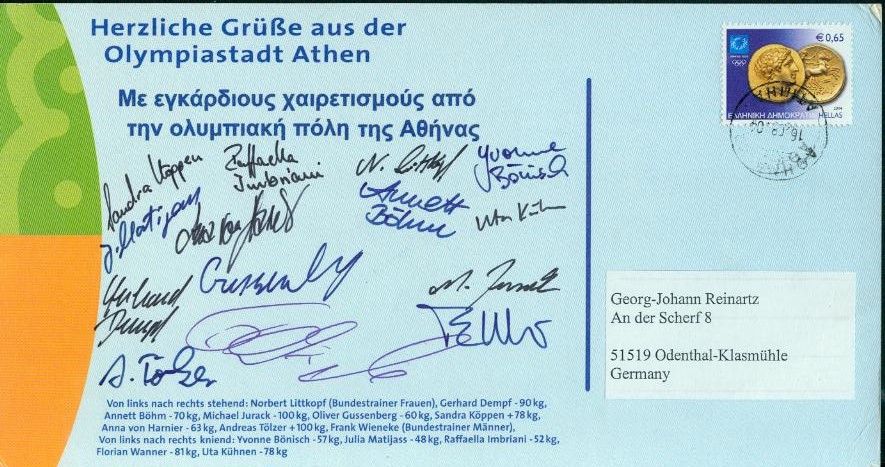 Herzliche Grüße aus der
Olympiastadt Athen
Με εγκάρδιους χαιρετισμούς από
την ολυμπιακή πόλη της Αθήνας
€0,65
2004
ΕΛΛΗΝΙΚΗ ΔΗΜΟΚΡΑΤΙΑ HELLAS
Sandra Köppen
Raffaella
Imbriani
N. Littkopf
Yvonne
Bönisch
J. Matijass
Anna von Harnier
Annett
Böhm
Uta Kühnen
Gerhard
Dempf
Gussenberg
M. Jurack
A. Tölzer
Georg-Johann Reinartz
An der Scherf 8
51519 Odenthal-Klasmühle
Germany
Von links nach rechts stehend: Norbert Littkopf (Bundestrainer Frauen), Gerhard Dempf - 90 kg,
Annett Böhm - 70 kg, Michael Jurack - 100 kg, Oliver Gussenberg - 60 kg, Sandra Köppen + 78 kg,
Anna von Harnier - 63 kg, Andreas Tölzer + 100 kg, Frank Wieneke (Bundestrainer Männer),
Von links nach rechts kniend: Yvonne Bönisch - 57 kg, Julia Matijass - 48 kg, Raffaella Imbriani - 52 kg,
Florian Wanner - 81 kg, Uta Kühnen - 78 kg